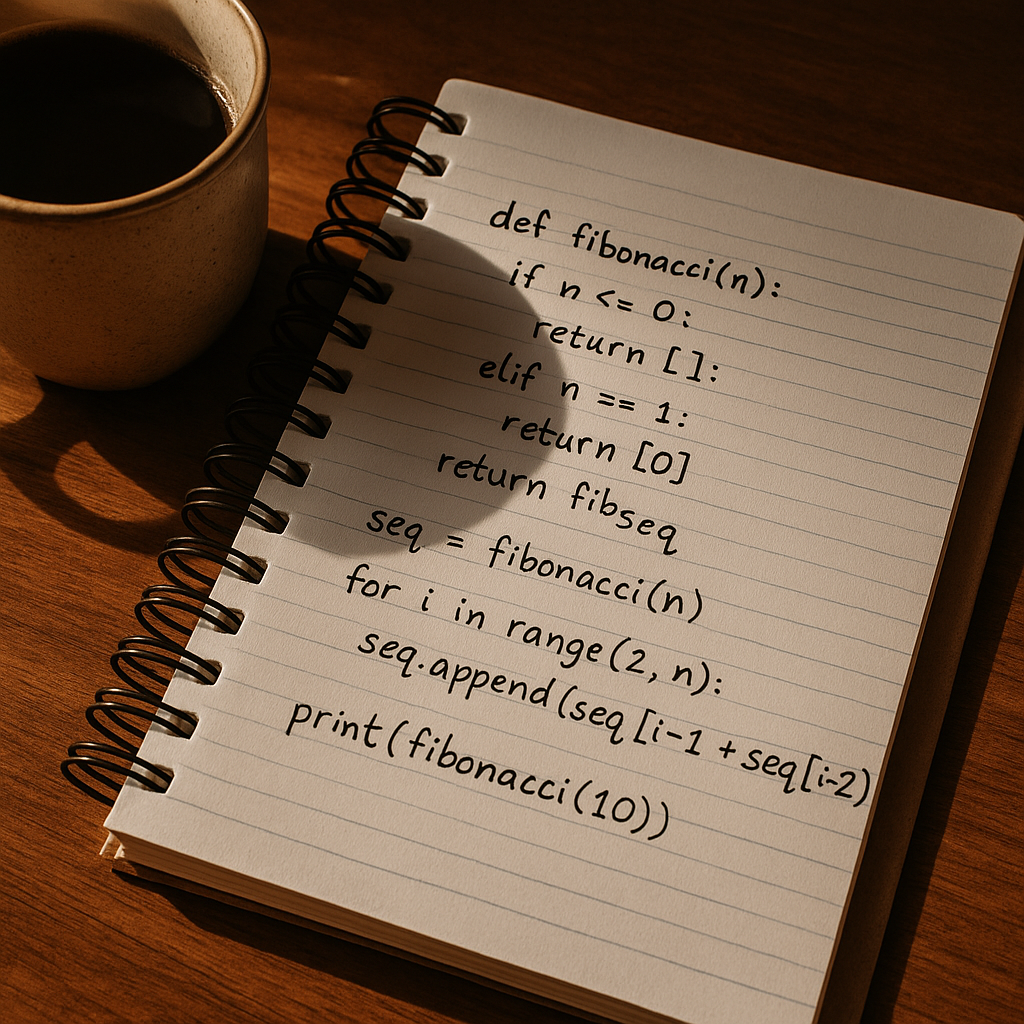 def fibonacci(n):
if n <= 0:
return []:
elif n == 1:
return [0]
return fibseq
seq = fibonacci(n)
for i in range(2, n):
seq.append(seq[i-1 + seq[i-2)
print(fibonacci(10))